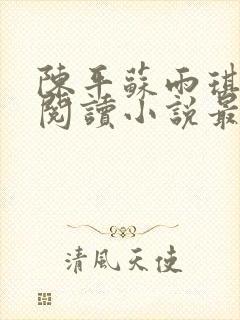 陳平蘇雨琪
閱讀小說最
清風天使